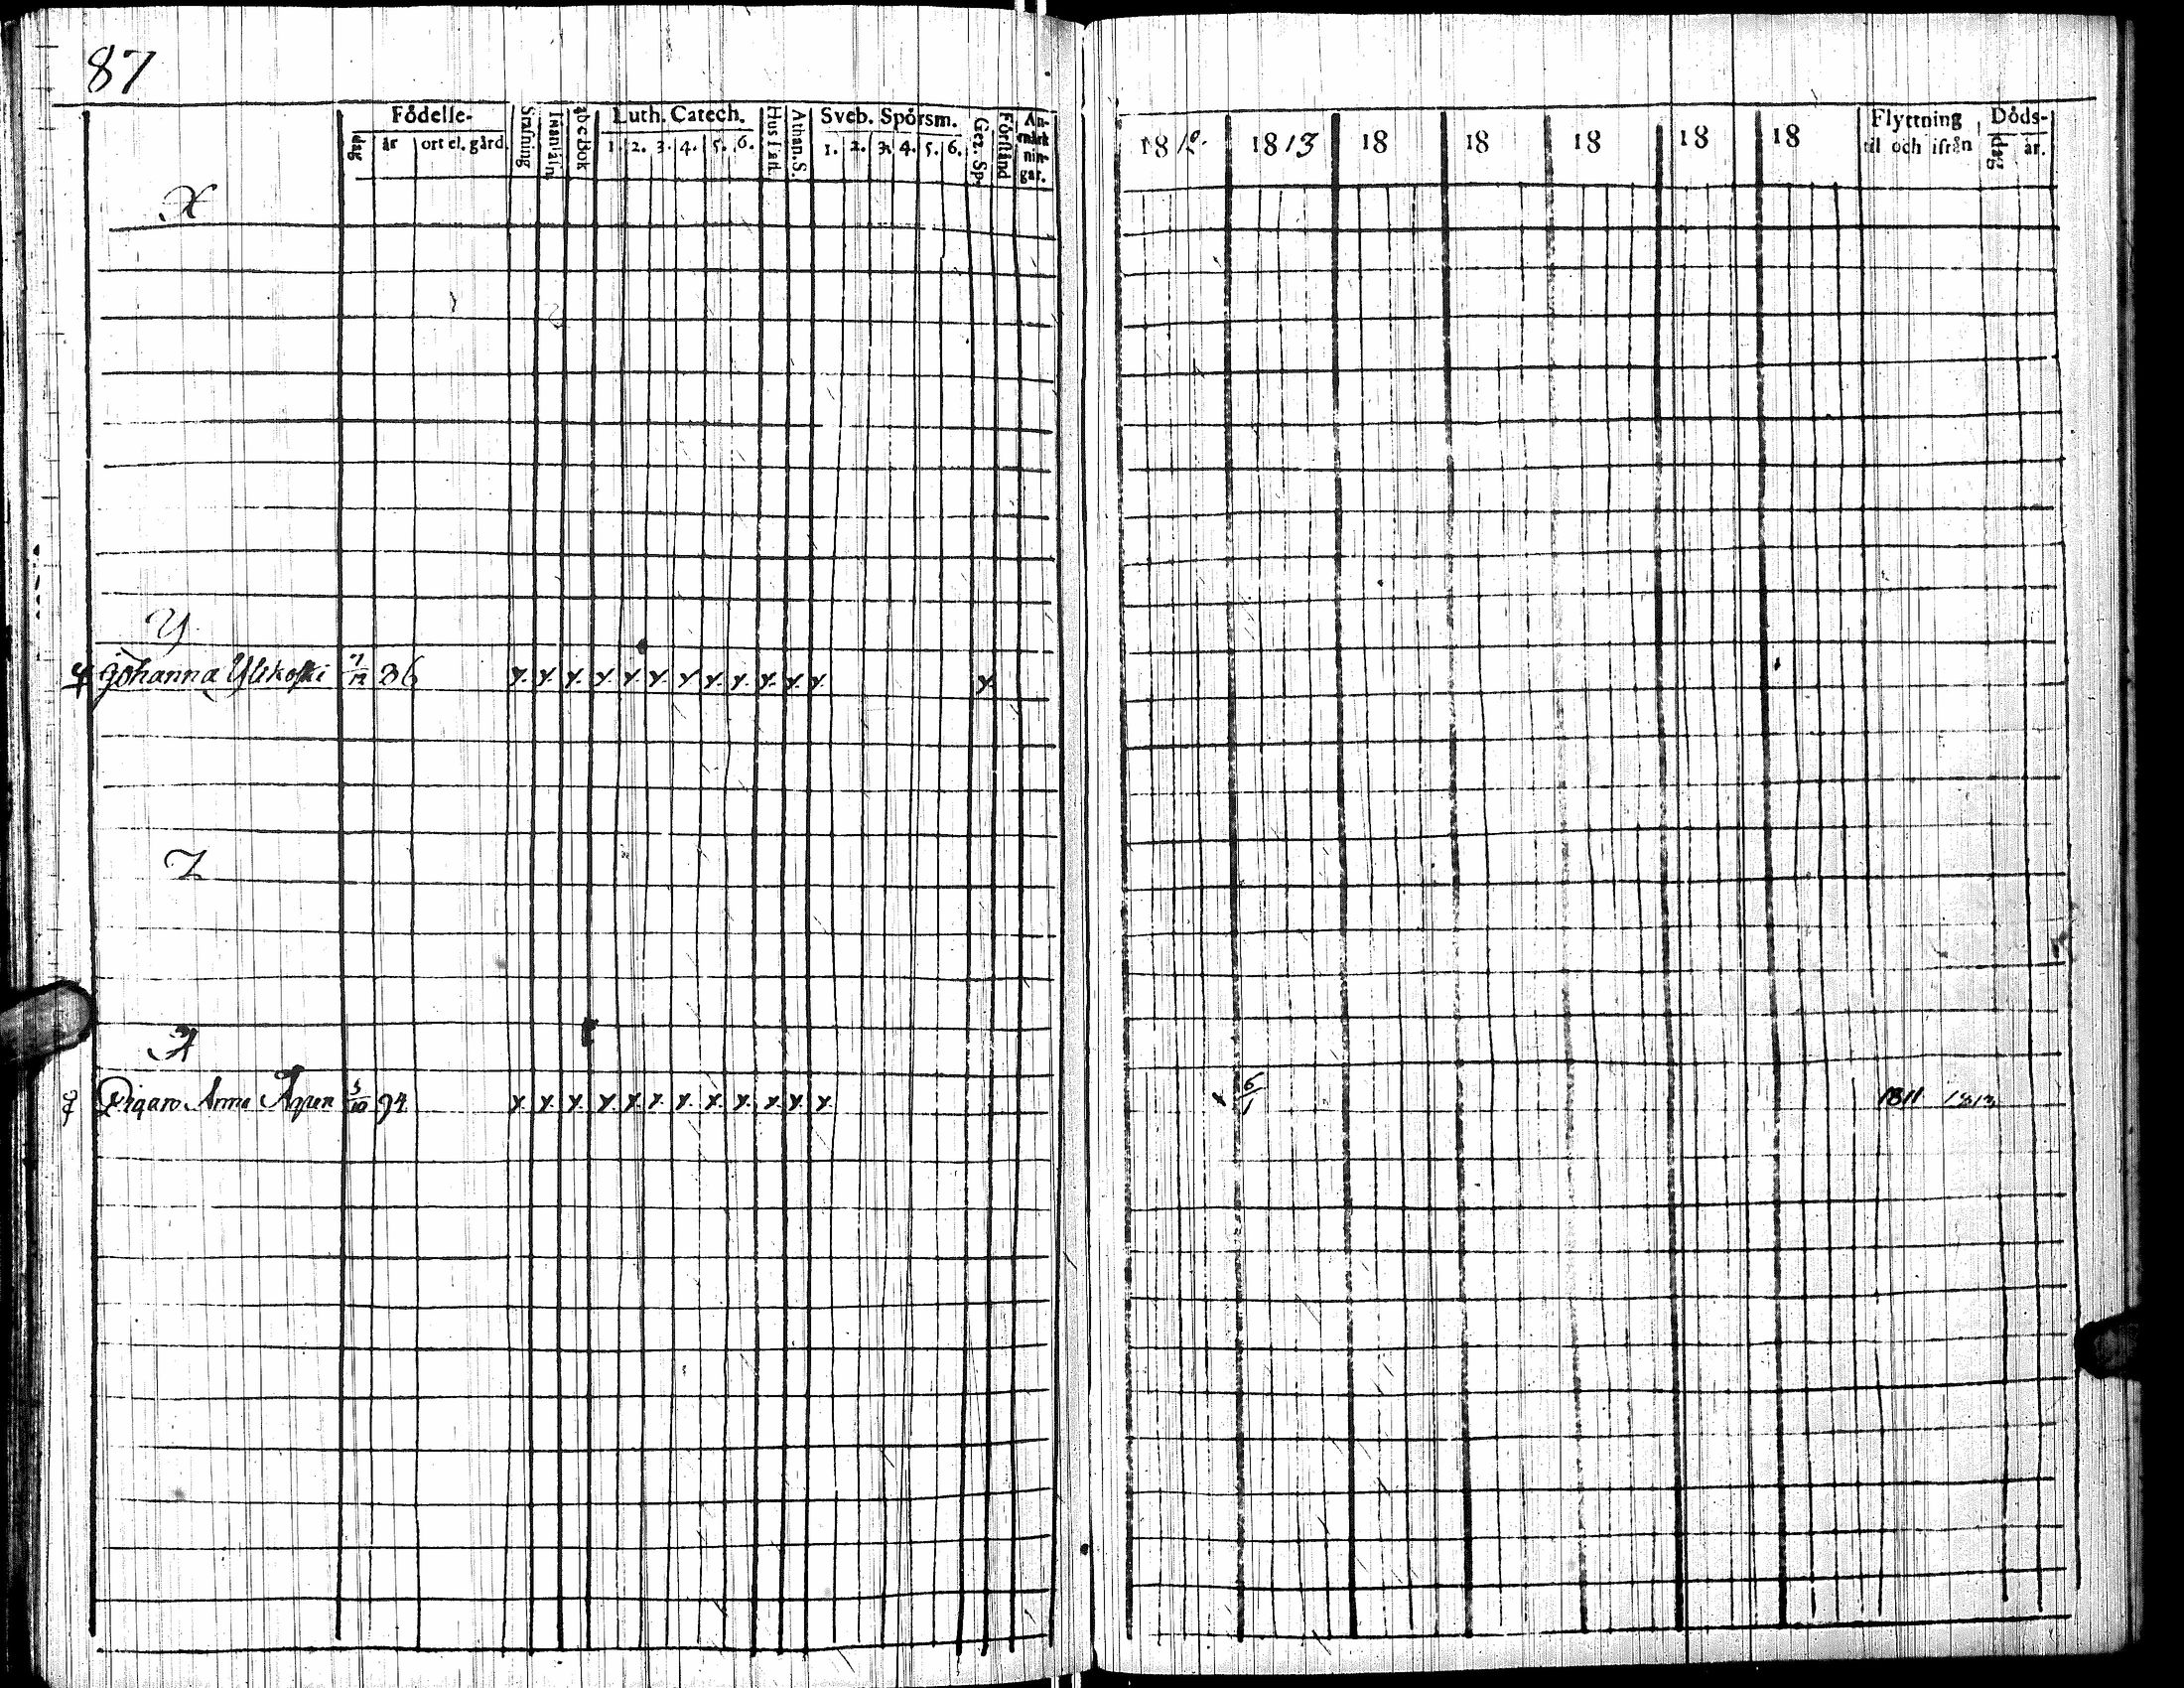 87
Födelse-
dag år ort el. gård.
Stafning
Innanläsn.
abc Bok
Luth. Catech.
1. 2. 3. 4. 5. 6.
Hus Tafl.
Athan. S.
Sveb. Spörsm.
1. 2. 3. 4. 5. 6.
Gez. Sp.
Förstånd
An-
märk
nin-
gar.
18 1813 18 18 18 18 18
Flyttning
til och ifrån
Döds-
dag år.
X
Y
Johanna Ylikoski 7/12 86 x. x. x. x. x. x. x x. x. x. x. x. x
Z
Å
Pigan Anna 5/10 94 x x. x. x. x. x. x. x. x. x. x. x. x 6/1 1811 1813